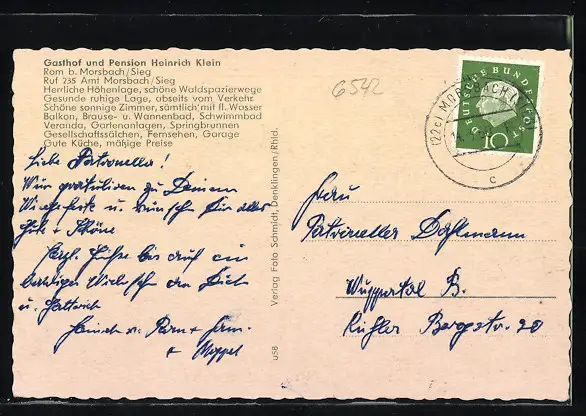 Gasthof und Pension Heinrich Klein
Rom b. Morsbach/Sieg
Ruf 235 Amt Morsbach/Sieg
Herrliche Höhenlage, schöne Waldspazierwege
Gesunde ruhige Lage, abseits vom Verkehr
Schöne sonnige Zimmer, sämtlich mit fl. Wasser
Balkon, Brause- u. Wannenbad, Schwimmbad
Veranda, Gartenanlagen, Springbrunnen
Gesellschaftssälchen, Fernsehen, Garage
Gute Küche, mäßige Preise
6572
DEUTSCHE BUNDESPOST
10
(22c) MORSBACH
c
Liebe Petronella!
Wir gratulieren zu Deinem
Wiegenfeste u. wünschen Dir alles
Gute + Schöne
Herzl. Grüße bis auf ein
baldiges Wiedersehen
u.
+ Moppel
Verlag Foto Schmidt, Denklingen/Rhld.
U58
Frau
Petronella Dahlmann
Wuppertal B.
Bergstr. 20